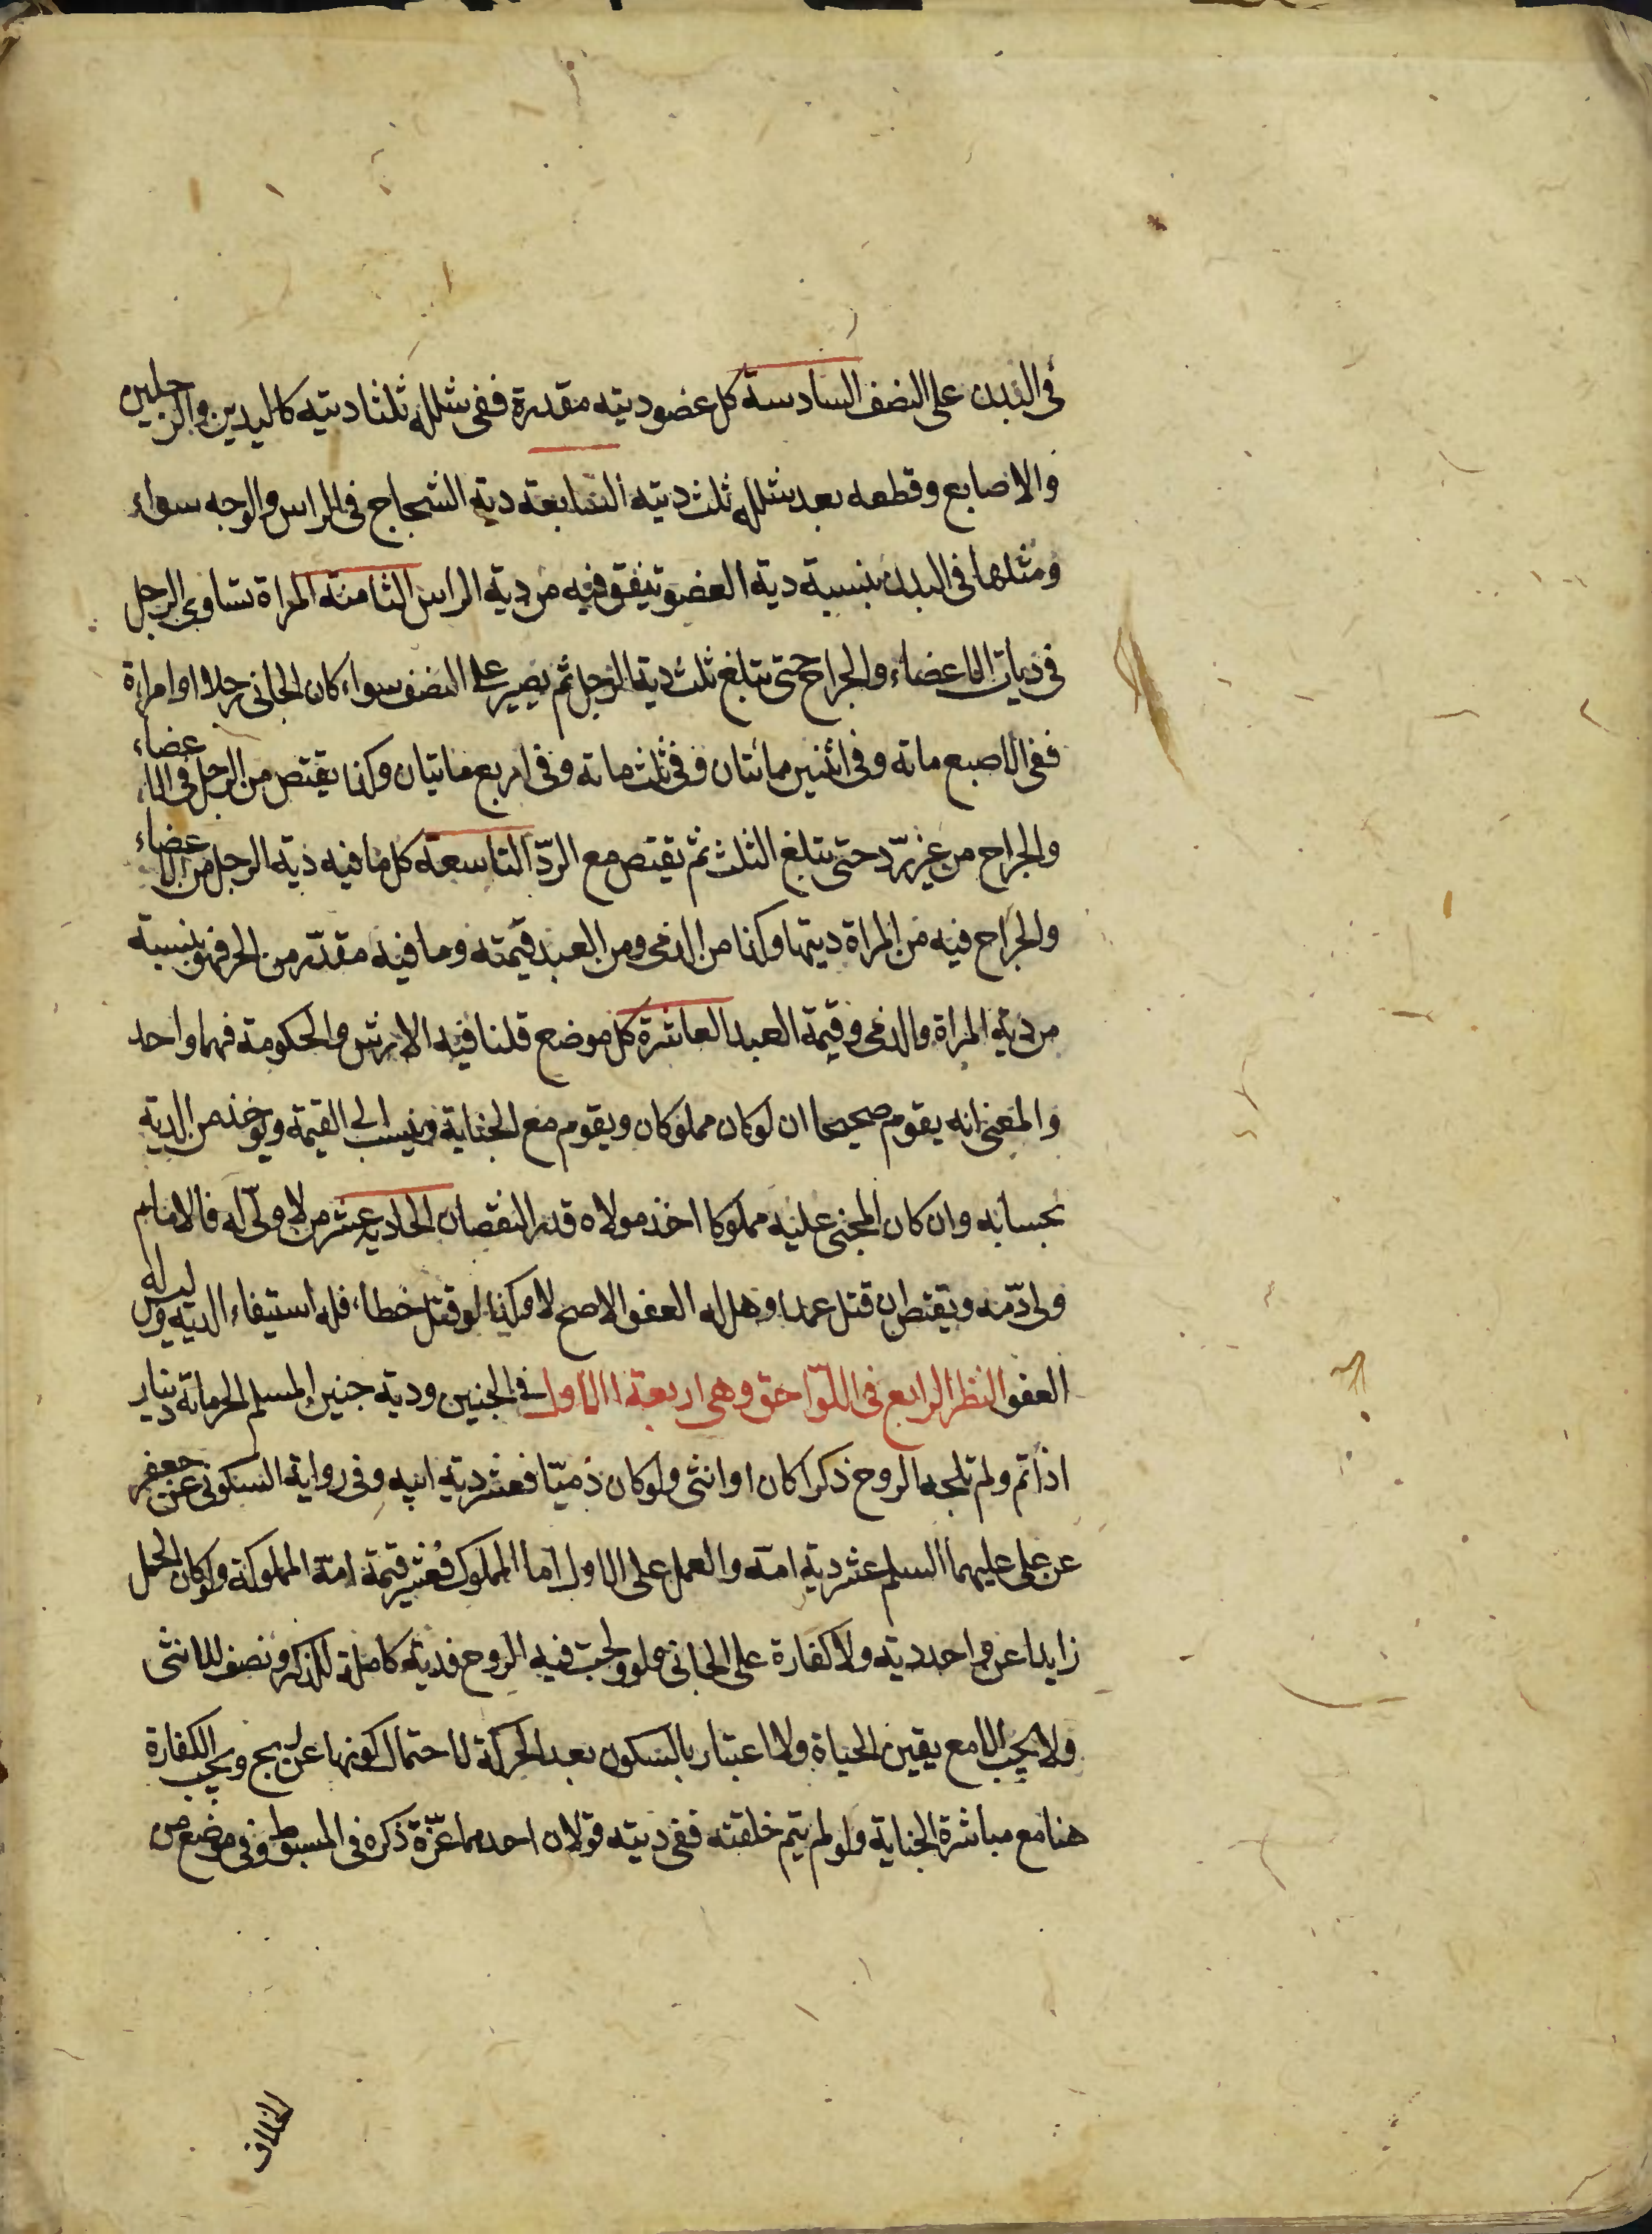 في البدن على النصف السادسة كل عضو ديته مقدرة ففي شلله ثلثا ديته كاليدين والرجلين
والاصابع وقطعه بعد شلله ثلث ديته السابعة دية الشجاج في الراس والوجه سواء
ومثلها في البدن بنسبة دية العضو يتفق فيه من دية الراس الثامنة المراة تساوي الرجل
في ديات الاعضاء والجراح حتى تبلغ ثلث دية الرجل ثم يصير على النصف سواء كان الجاني رجلا او امراة
ففي الاصبع ماته وفي اثنين مائتان وفي ثلث ماته وفي اربع ماتيان وكذا يقتص من الرجل في الاعضاء
والجراح من غير ردّ حتى تبلغ الثلث ثم يقتص مع الردّ التاسعة كل ما فيه دية الرجل من الاعضاء
والجراح فيه من المراة ديتها وكذا من الذمي ومن العبد قيمته وما فيه مقدّر من الحر فهو بنسبة
من دية المراة والذمي وقيمة العبد العاشرة كل موضع قلنا فيه الارش والحكومة فهما واحد
والمعنى انه يقوم صحيحا ان لو كان مملوكا ويقوم مع الجناية وينسب الى القيمة ويوخذ من الدية
بحسابه وان كان المجني عليه مملوكا اخذ مولاه قدر النقصان الحادية عشر من لا ولّى له فالامام
ولى دّمه ويقتص ان قتل عمدا وهل له العفو الاصح لا وكذا لو قتل خطاء فله استيفاء الدية وليس له
العفو النظر الرابع في اللّواحق وهي اربعة الاول في الجنين ودية جنين المسلم الحر ماتة دينار
اذا تم ولم تلجه الروح ذكرا كان او انثى ولو كان ذميّا فعشر دية ابيه وفي رواية السكوني عن جعفر
عن علي عليهما السلم عشر دية امه والعمل على الاول اما المملوك فعشر قيمة امّة المملوكة ولو كان الحمل
زايدا عن واحد دية ولا كفارة على الجاني ولو ولجت فيه الروح فدية كاملة للذكر ونصف للانثى
ولا يجب الا مع يقين الحياة ولا اعتبار بالسكون بعد الحركة لاحتمال كونها عن ريح ويجب الكفارة
هنا مع مباشرة الجناية ولو لم يتم خلقته ففي ديته قولان احدهما غرّة ذكره في المبسوط وفي موضع من
الخلاف